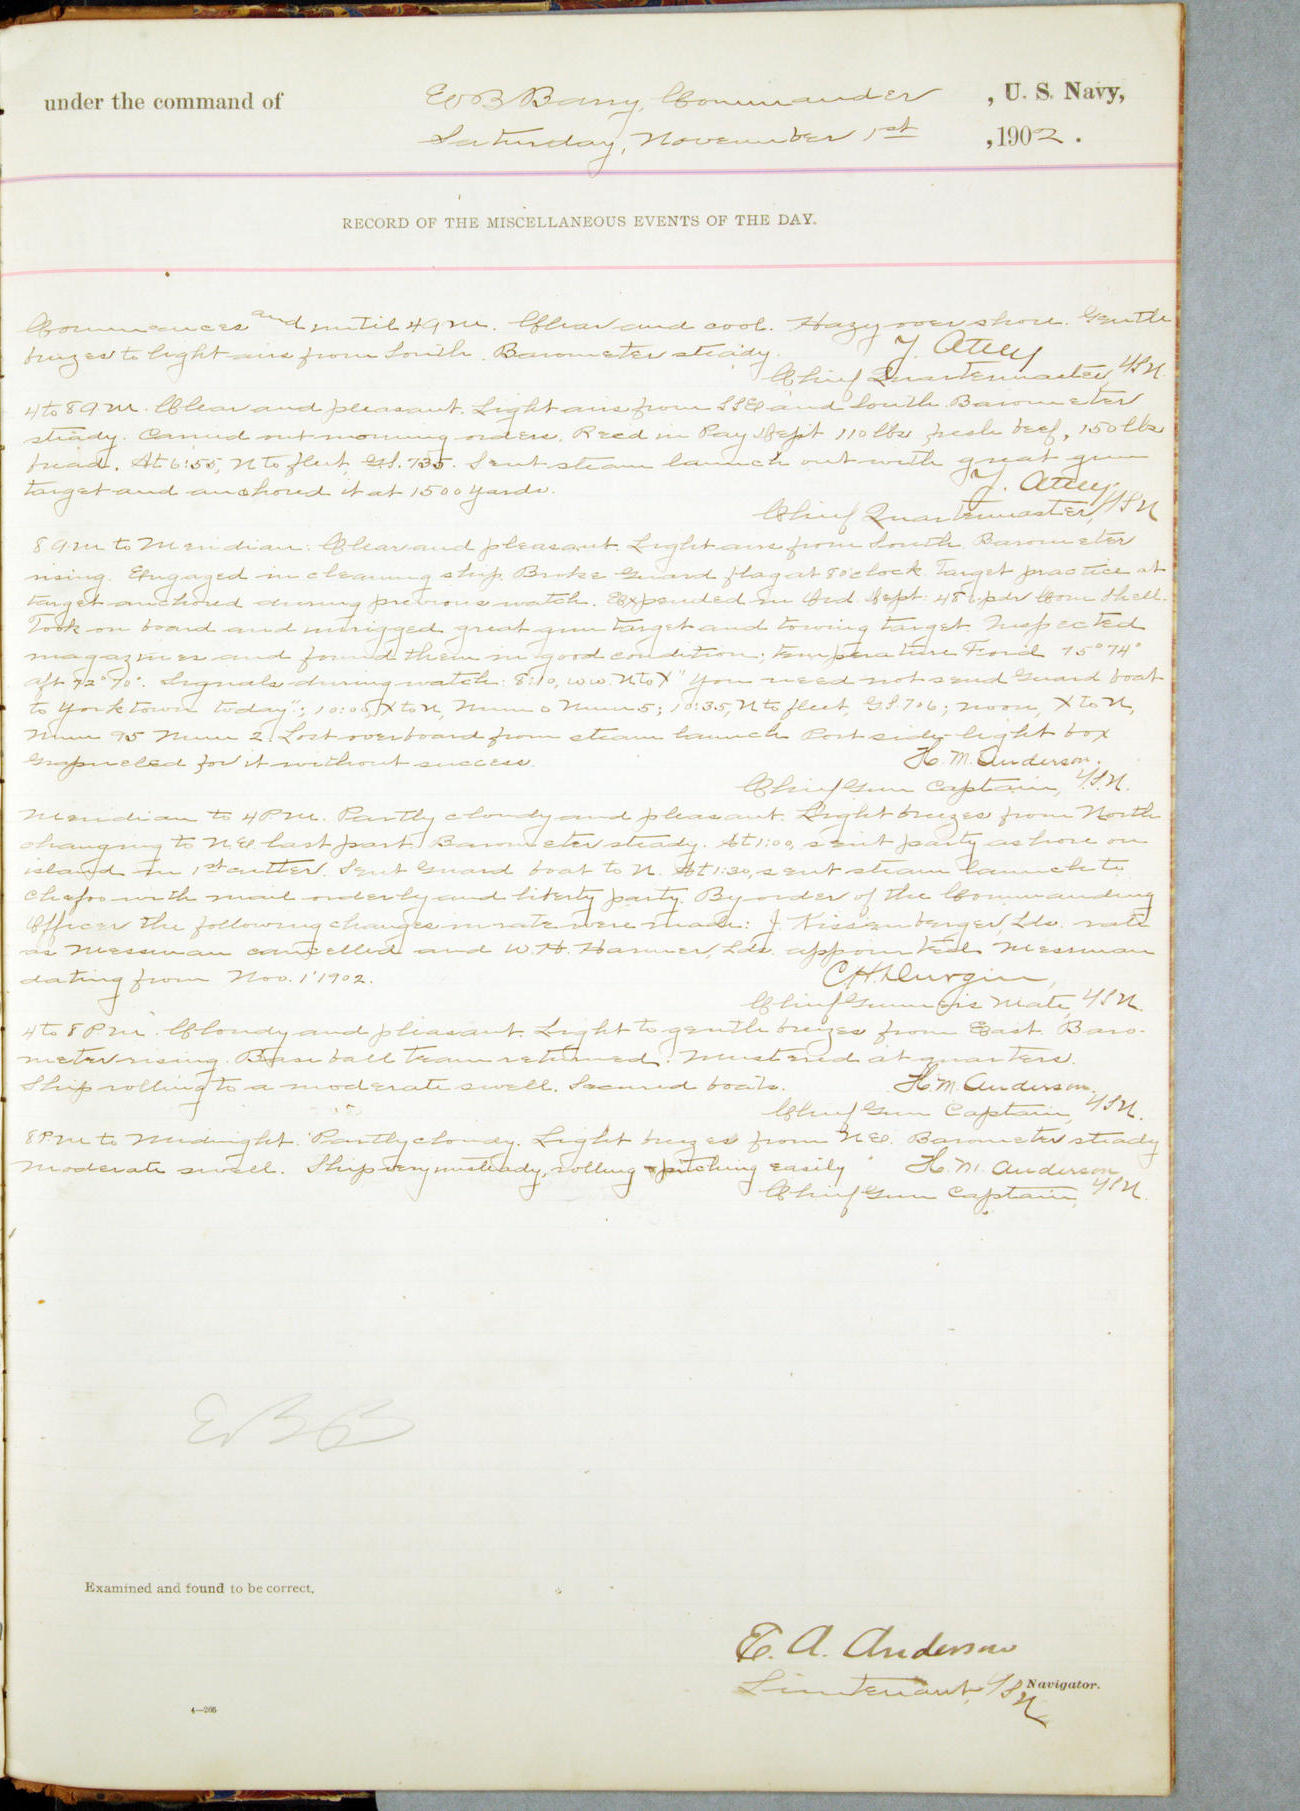 under the command of E B Barry, Commander , U. S. Navy,
Saturday, November 1st , 1902.
RECORD OF THE MISCELLANEOUS EVENTS OF THE DAY.
Commences and until 4 A M. Clear and cool. Hazy over shore. Gentle
breezes to light airs from South. Barometer steady.
Chief Quartermaster, USN.
4 to 8 A M. Clear and pleasant. Light airs from SSE and South. Barometer
steady. Carried out morning orders. Recd in Pay Dept 110 lbs fresh beef, 150 lbs
bread. At 6:55, N to fleet, G.S. 735. Sent steam launch out with great gun
target and anchored it at 1500 yards.
Chief Quartermaster, USN
8 A M to Meridian: Clear and pleasant. Light airs from South. Barometer
rising. Engaged in cleaning ship. Broke Guard flag at 8 o'clock. Target practice at
target anchored during previous watch. Expended in Ord. Dept: 48 6 pdr Com Shell.
Took on board and unrigged great gun target and towing target. Inspected
magazines and found them in good condition; temperature Ford 75° 74°
aft 72° 70°. Signals during watch: 8:10, W.W. N to X "You need not send Guard boat
to Yorktown today"; 10:05, X to N, Num 0 Num 5; 10:35, N to fleet, G.S. 706; noon, X to N,
Num 95 Num 2. Lost overboard from steam launch Port side-light box
Grapneled for it without success. H. M. Anderson.
Chief Gun Captain, U.S.N.
Meridian to 4 P M. Partly cloudy and pleasant. Light breezes from North
changing to NE last part. Barometer steady. At 1:00, sent party ashore on
island in 1st cutter. Sent Guard boat to N. At 1:30, sent steam launch to
Chefoo with mail orderly and liberty party. By order of the Commanding
Officer the following changes in rate were made: J. Kissenberger, Lds. rate
as Messman cancelled and W. H. Harmer, Lds. appointed Messman
dating from Nov. 1 1902. C H. Durgin,
Chief Gunner's Mate, USN.
4 to 8 P M. Cloudy and pleasant. Light to gentle breezes from East. Baro-
meter rising. Base ball team returned. Mustered at quarters.
Ship rolling to a moderate swell. Secured boats. H. M. Anderson.
Chief Gun Captain, USN.
8 P M to Midnight. Partly cloudy. Light breezes from NE. Barometer steady
Moderate swell. Ship very unsteady, rolling & pitching easily H. M. Anderson
Chief Gun Captain, USN.
EBB
Examined and found to be correct.
E. A. Anderson
Lieutenant, USN Navigator.
4—266